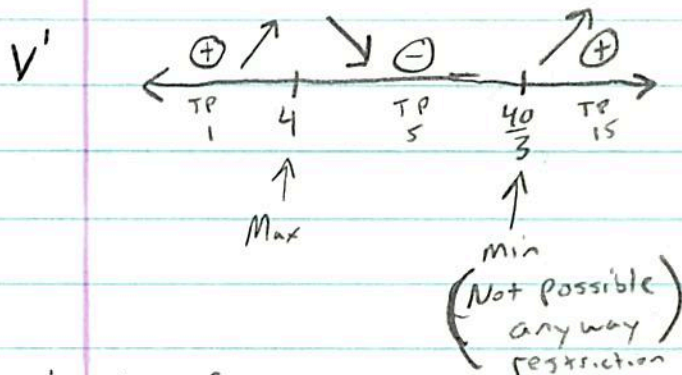 V' ⊕ ⊖ ⊕
TP 4 TP 40/3 TP
1 5 15
Max
Min
(Not possible
anyway
restriction)